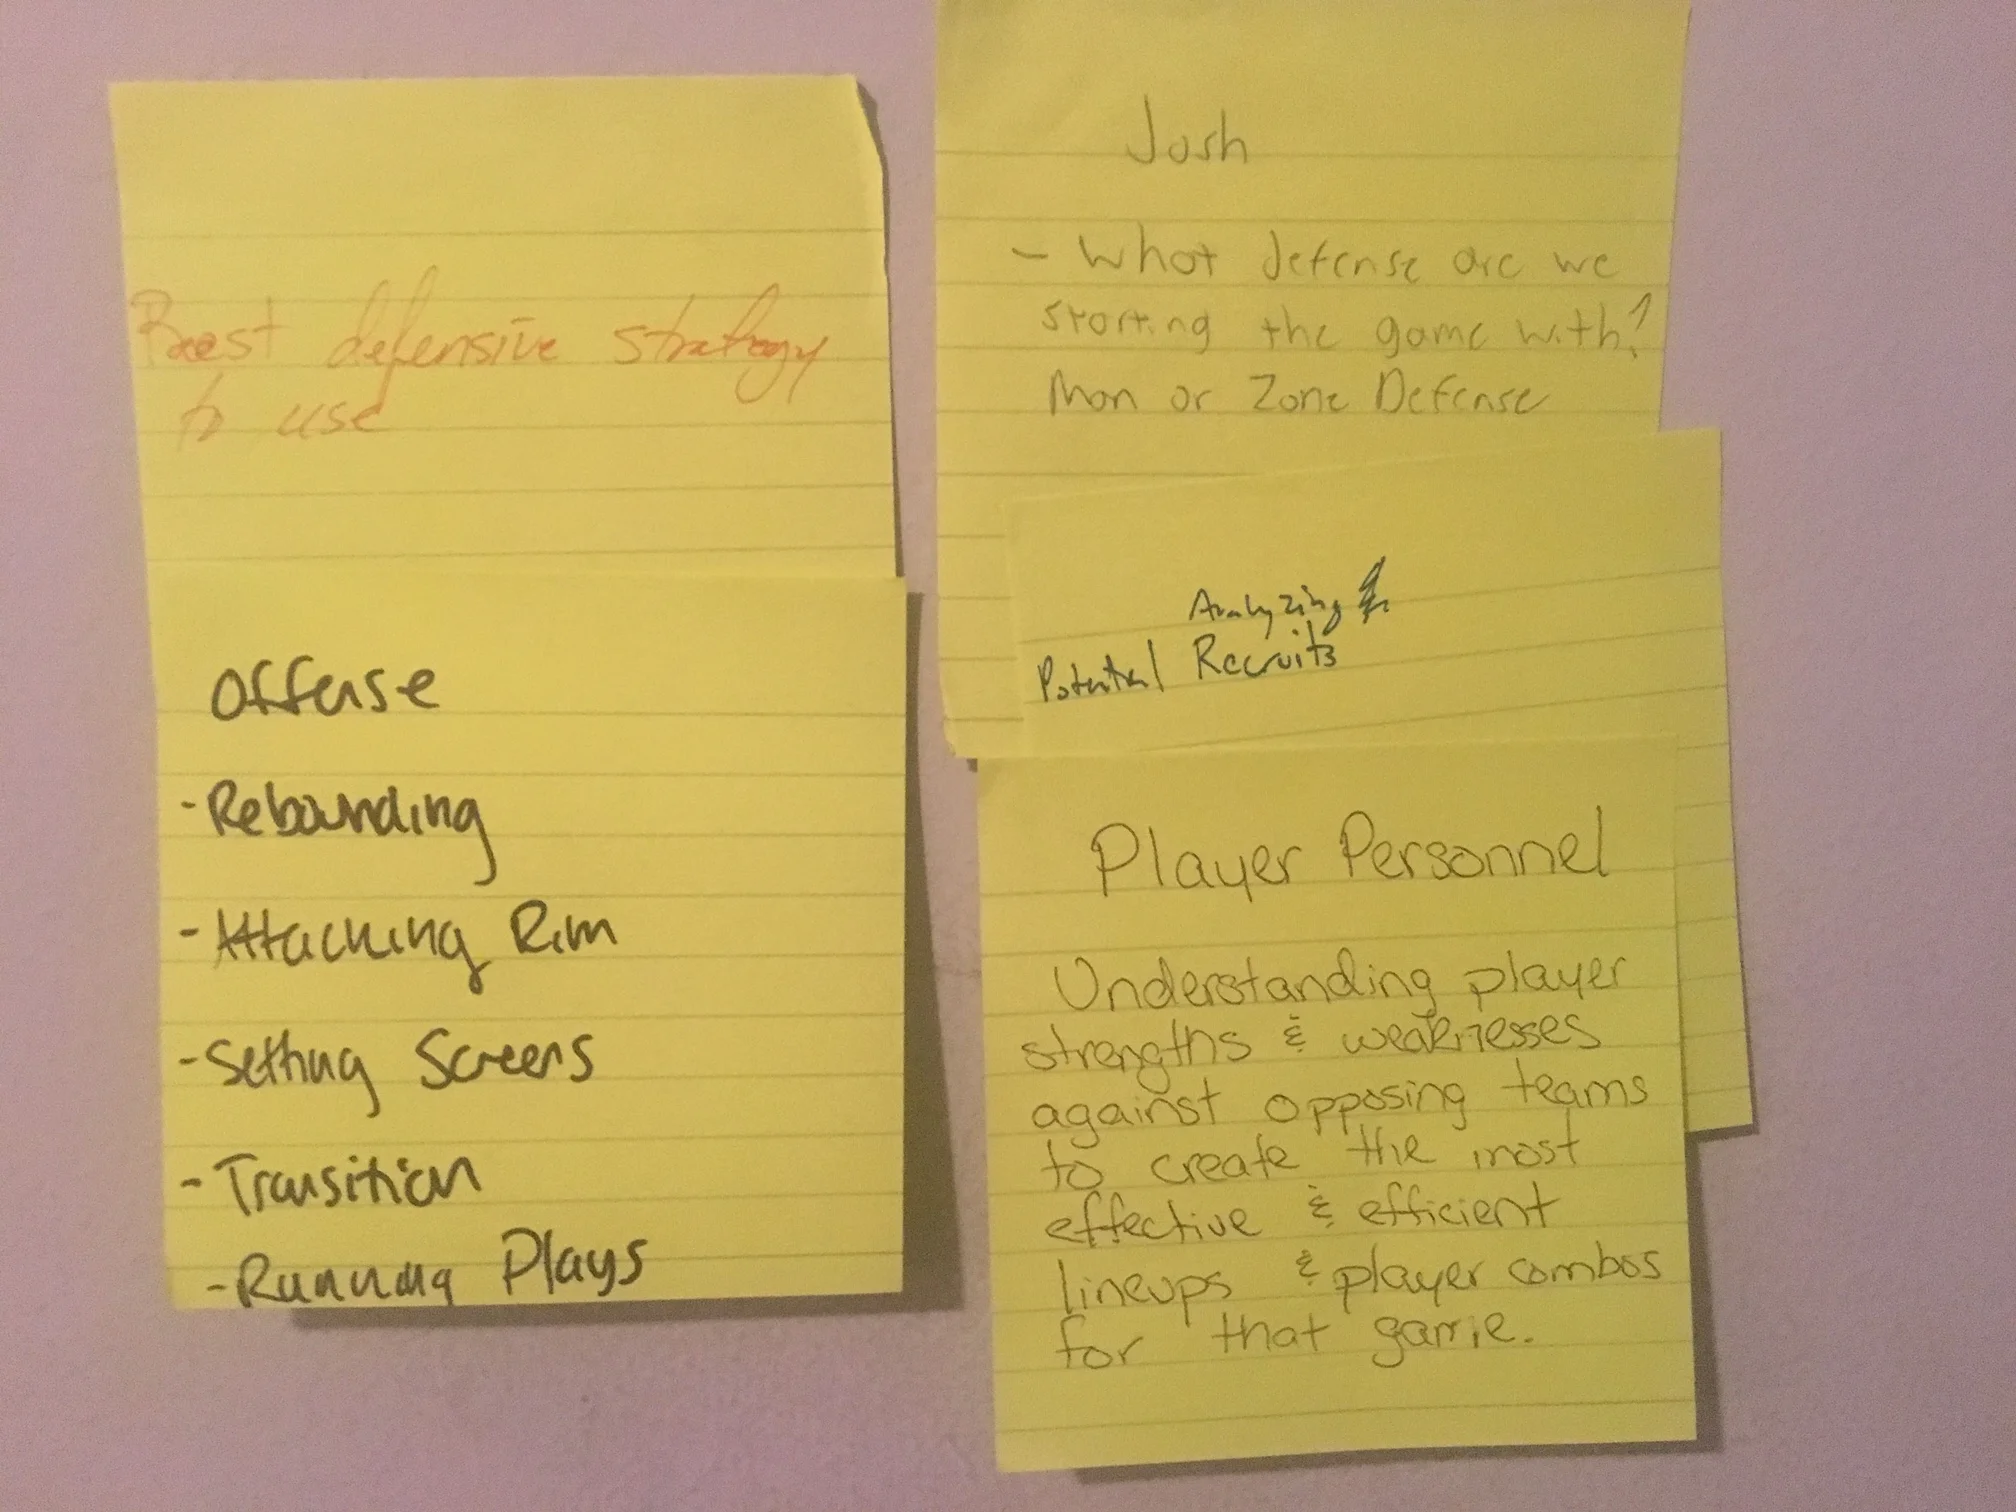 Best defensive strategy
to use
Offense
- Rebounding
- Attacking Rim
- Setting Screens
- Transition
- Running Plays
Josh
- What defense are we
starting the game with?
Man or Zone Defense
Analyzing
Potential Recruits
Player Personnel
Understanding player
strengths & weaknesses
against opposing teams
to create the most
effective & efficient
lineups & player combos
for that game.